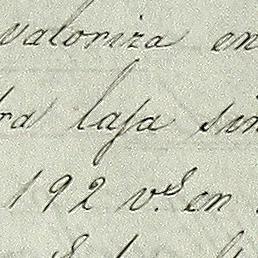 valoriza en
ra laja sin
192 v.s en